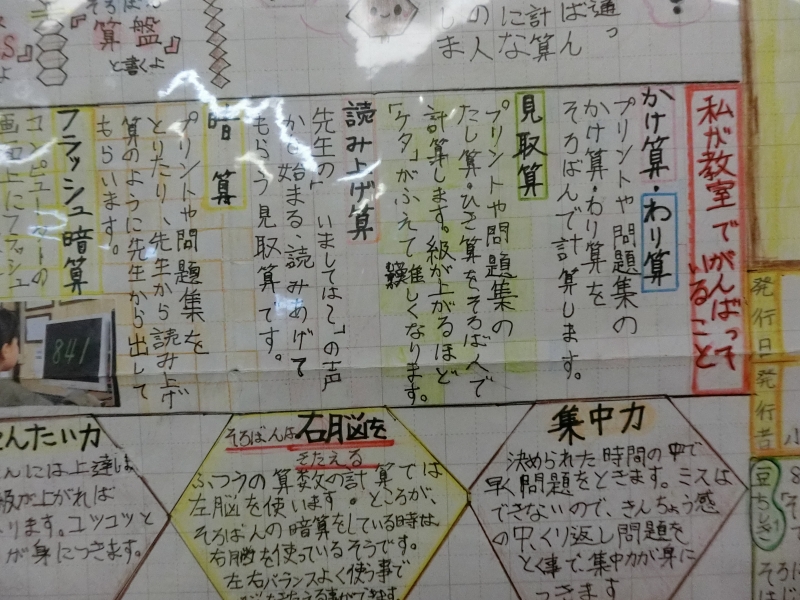 通っ
ばん
計算
にな
の人
しま
『算盤』
と書くよ
私が教室でがんばって
いること
かけ算・わり算
プリントや問題集の
かけ算・わり算を
そろばんで計算します。
見取算
プリントや問題集の
たし算・ひき算をそろばんで
計算します。級が上がるほど
「ケタ」がふえて難しくなります。
読み上げ算
先生の「いましては〜」の声
かで始まる、読みあげて
もらう見取算です。
暗算
プリントや問題集を
とりたり、先生から読み上げ
算のように先生から出して
もらいます。
フラッシュ暗算
コンピューターの
画面上にフラッシュ
841
発行日
発行者
集中力
決められた時間の中で
早く問題をときます。ミスは
できないので、きんちょう感
の中、くり返し問題を
とく事で、集中力が身に
つきます
そろばんは右脳を
きたえる
ふつうの算数の計算では
左脳を使います。ところが、
そろばんの暗算をしている時は、
右脳を使っているそうです。
左右バランスよく使う事で
んたい力
んには上達は
級が上がれば
ります。コツコツと
が身につきます。
豆ちしき